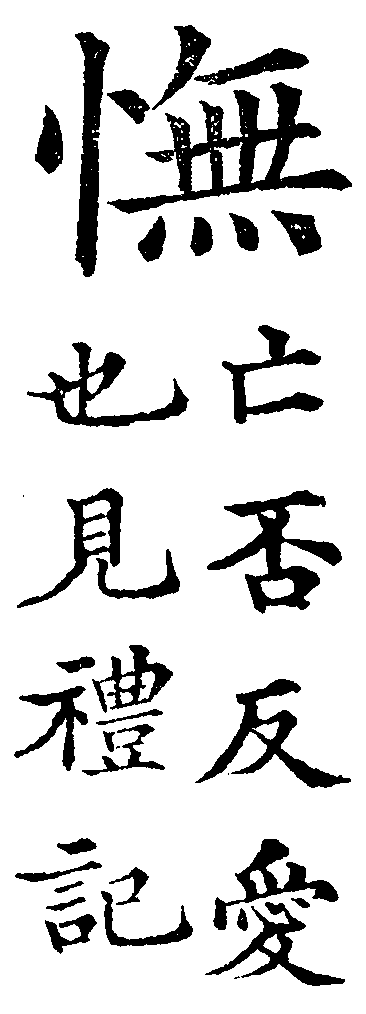 憮
亡否反愛
也見禮記